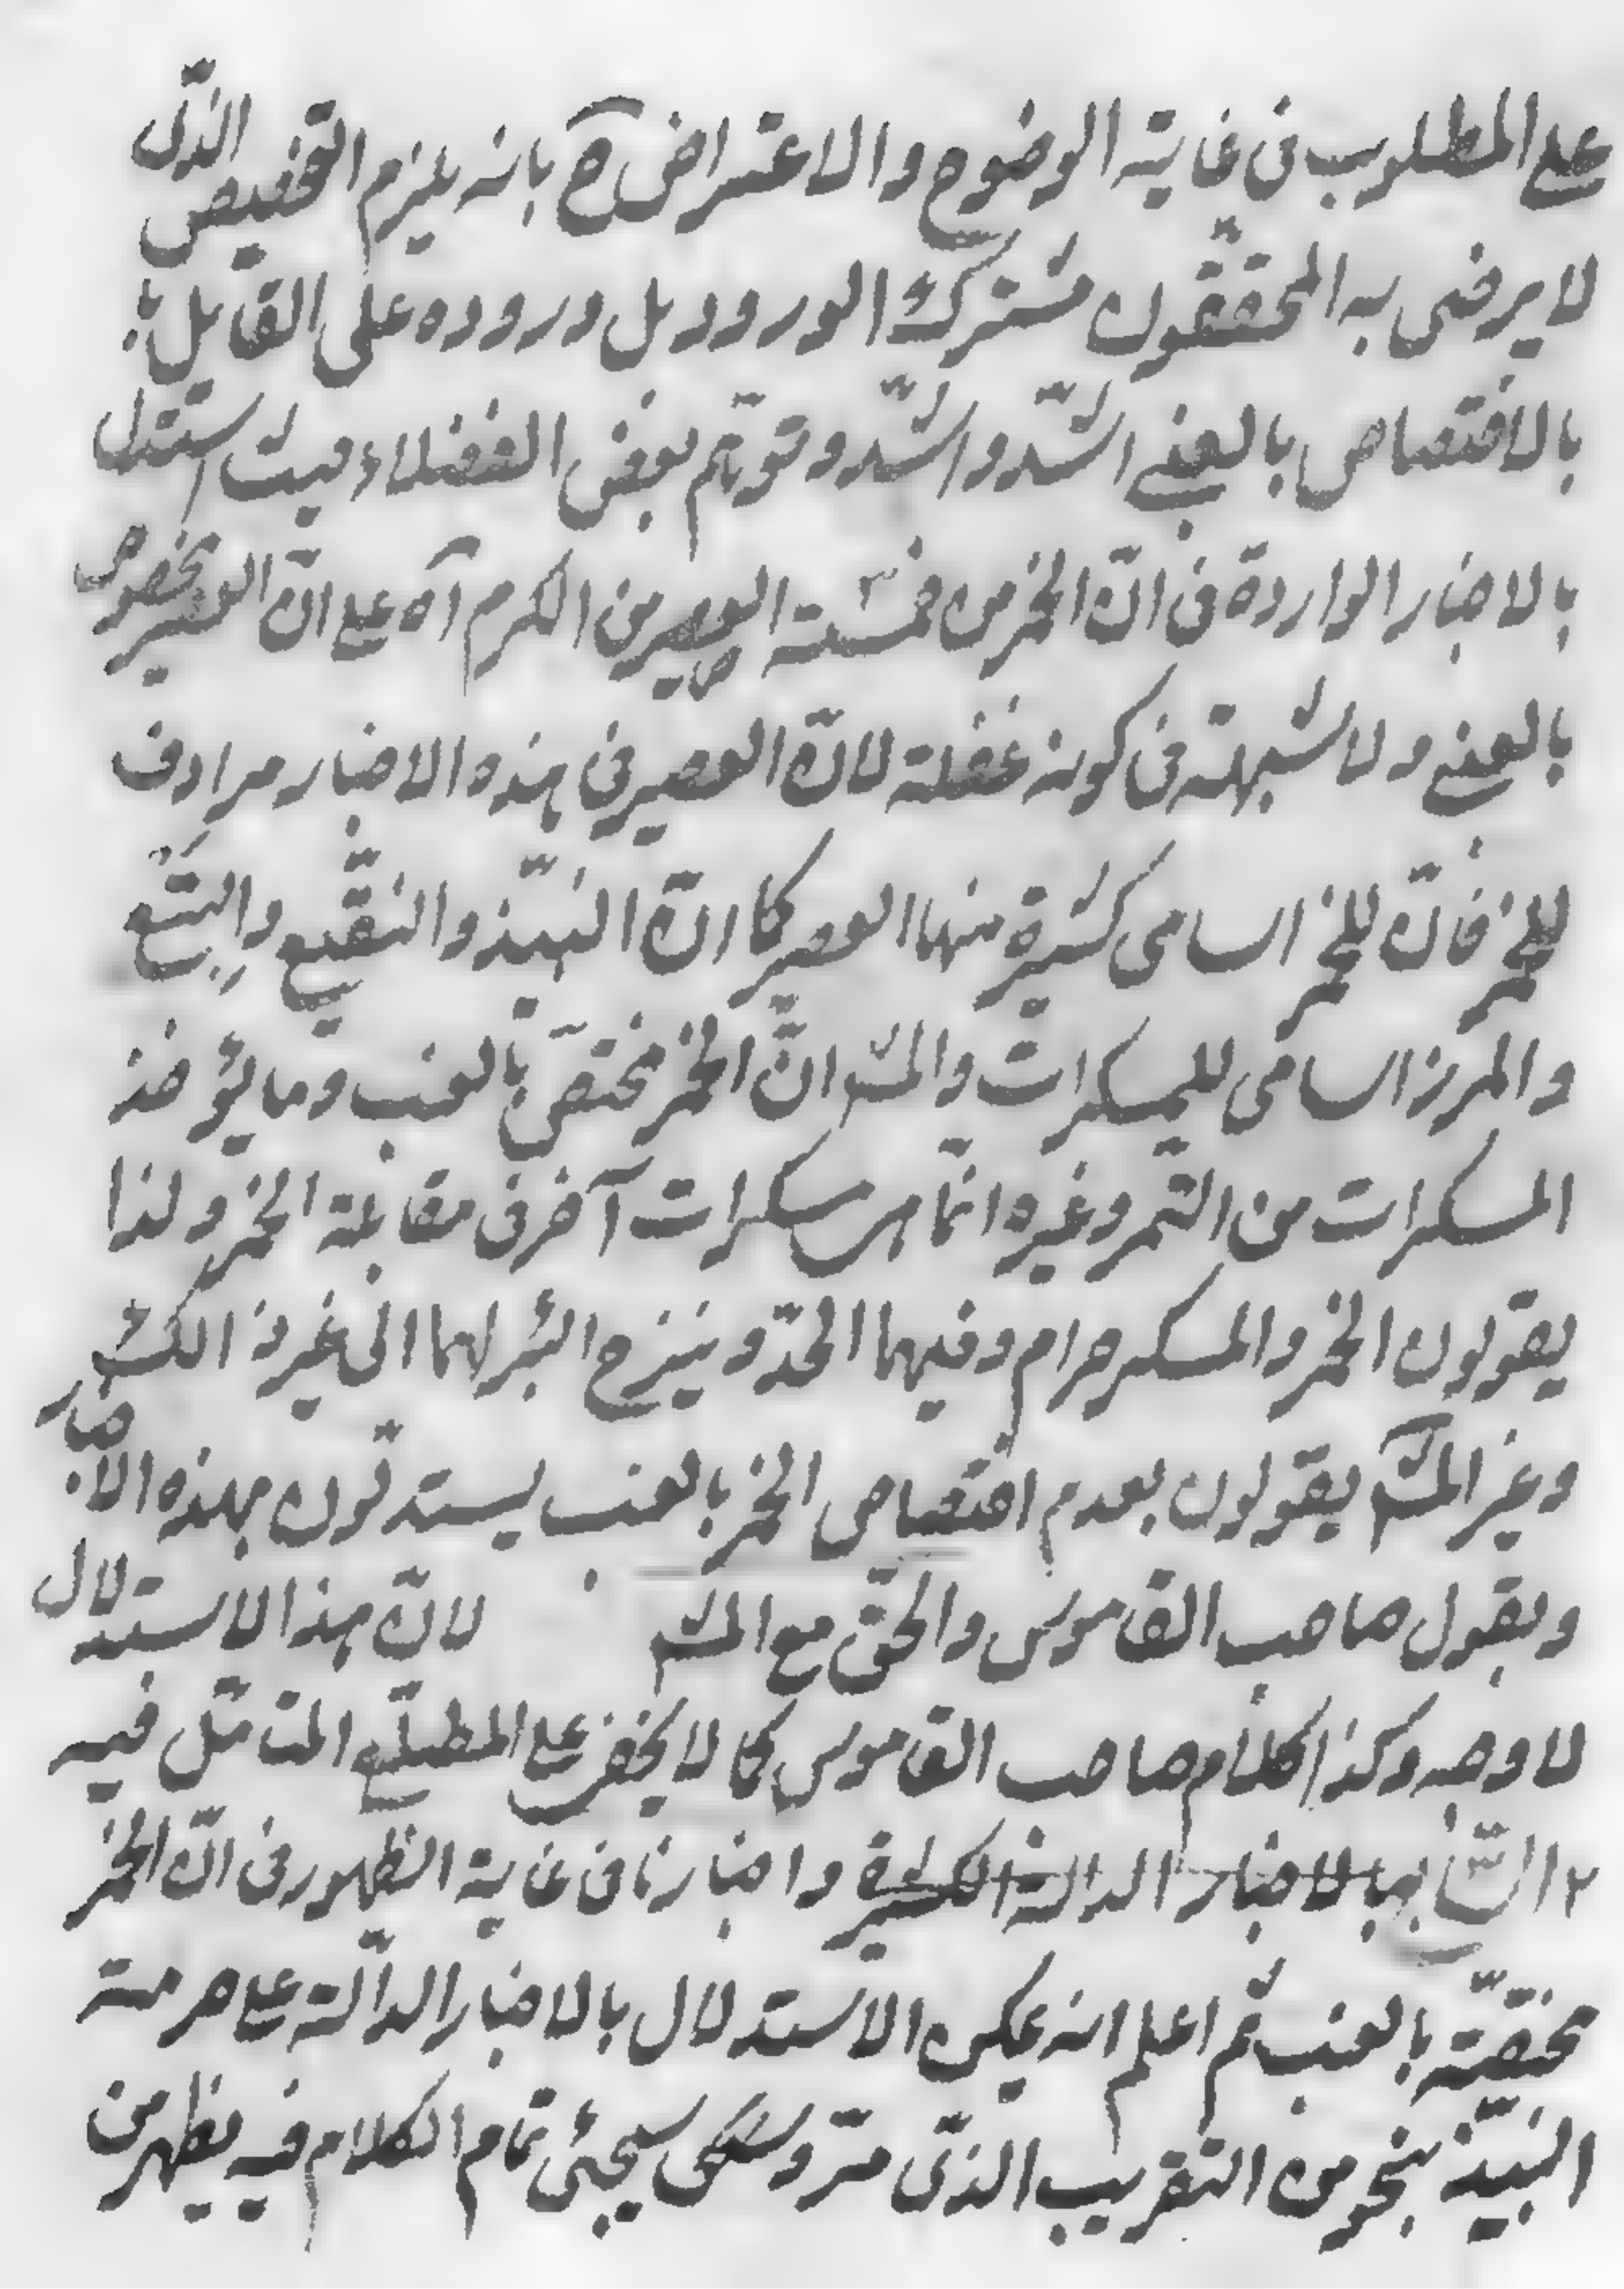 على المطلوب فى غاية الوضوح والاعتراض ح بانه يلزم التخصيص الذى
لا يرضى به المحققون مشترك الورود بل وروده على القايل
بالاختصاص بالعنبى اشد واشد وتوهم بعض الفضلاء حيث استدل
بالاخبار الواردة فى ان الخمر من خمسة العصير من الكرم آه على ان العصير مخصوص
بالعنبى ولا شبهة فى كونه غفلة لان العصير فى هذه الاخبار مرادف
للخمر فان للخمر اسامى كثيرة منها العصير كما ان النبيذ والنقيع والبتع
والمزر اسامى للمسكرات والمشهور ان الخمر مختص بالعنب وما يؤخذ
المسكرات من التمر وغيره انما هى مسكرات آخر فى مقابلة الخمر ولذا
يقولون الخمر والمسكر حرام وفيهما الحد وينزح البئر لهما الى غير ذلك
وغير المشهور يقولون بعدم اختصاص الخمر بالعنب يستدلون بهذه الاخبار
وبقول صاحب القاموس والحق مع المشهور لان هذا الاستدلال
لا وجه وكذا كلام صاحب القاموس كما لا يخفى على المطلع المتامل فيه
بالاخبار الدالة الكثيرة واخبارنا فى غاية الظهور فى ان الخمر
مختصة بالعنب ثم اعلم انه يمكن الاستدلال بالاخبار الدالة على حرمة
النبيذ بنحو من التقريب الذى مر وسيجئ تمام الكلام فيه يظهر من